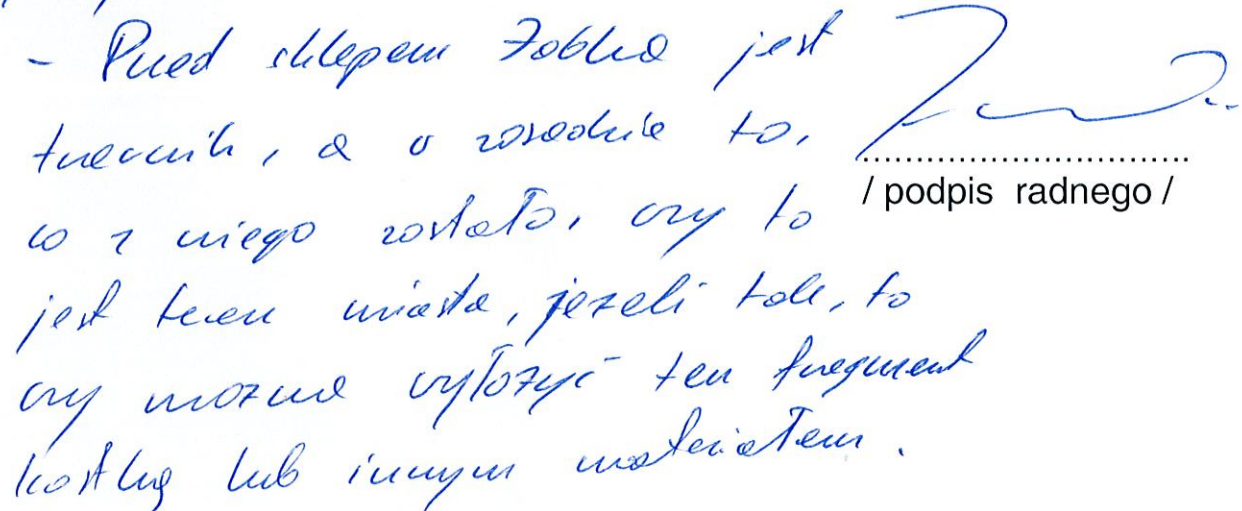 - Przed sklepem Żabka jest
trawnik, a w zasadzie to,
co z niego zostało, czy to
jest teren miasta, jeżeli tak, to
czy można wyłożyć ten fragment
kostką lub innym materiałem.
/ podpis radnego /